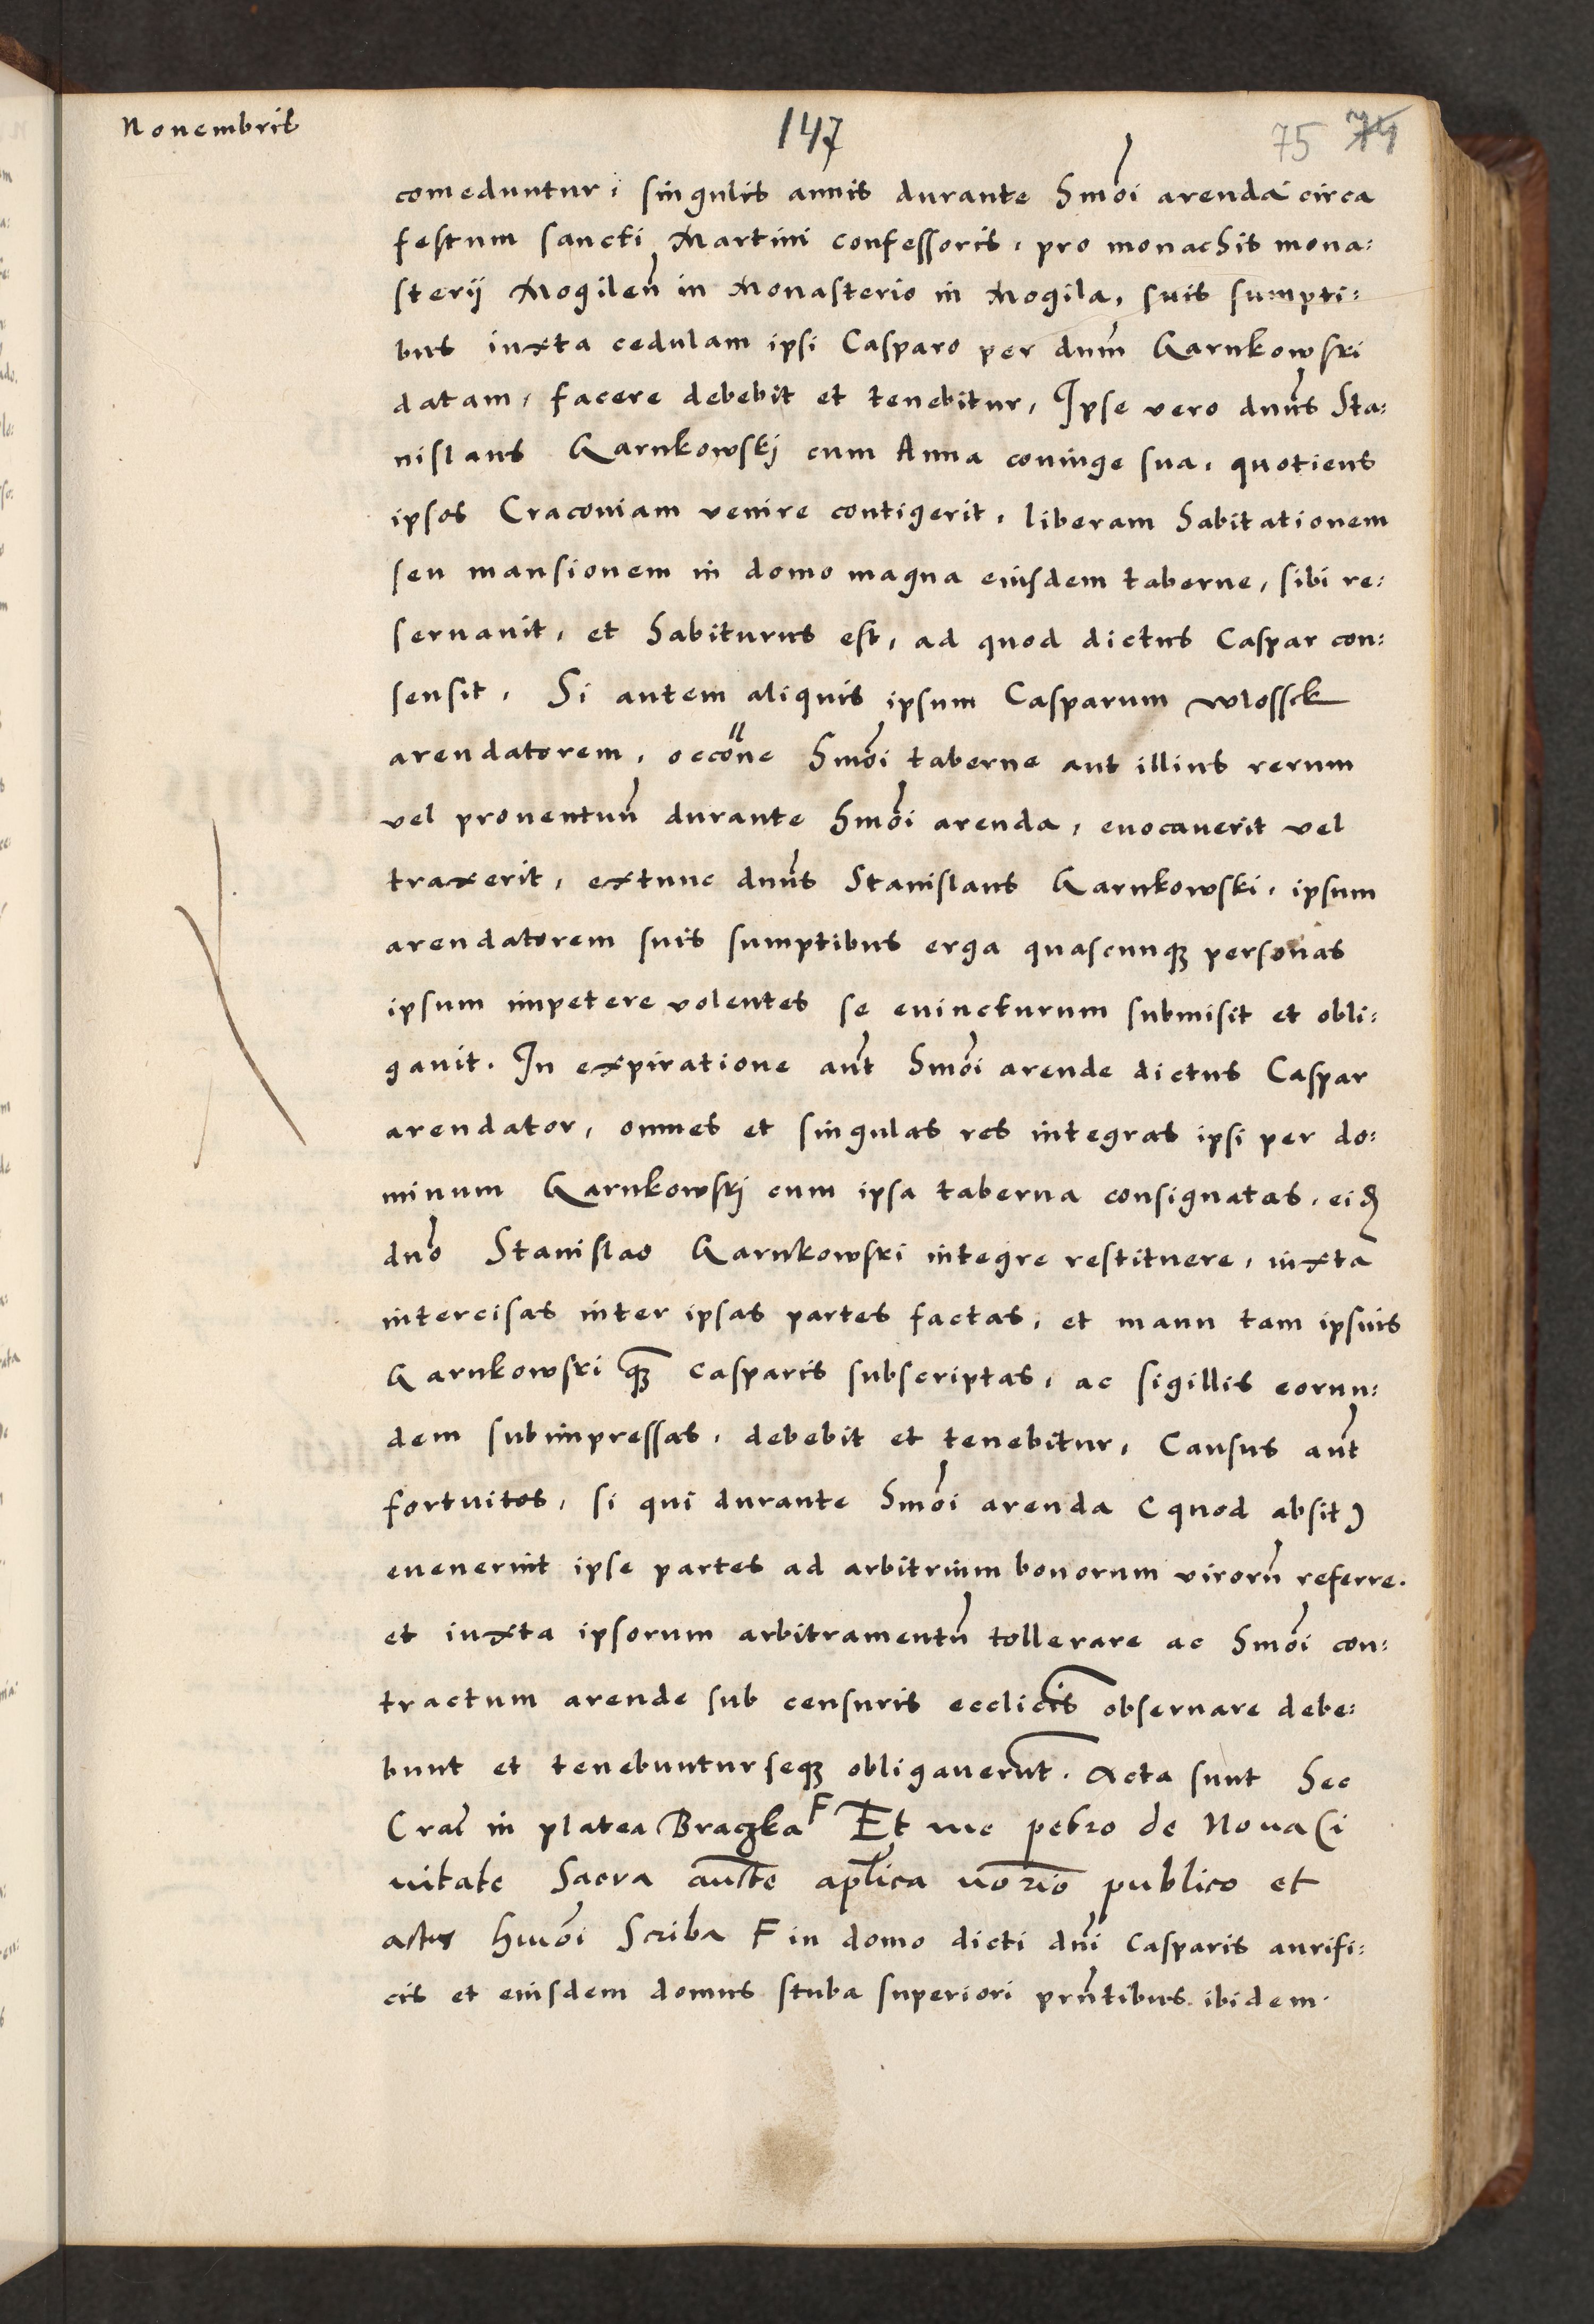 Nouembris
147
75 74
comeduntur, singulis annis durante hmõi arenda circa
festum sancti Martini confessoris, pro monachis mona:
sterij Mogileñ in Monasterio in Mogila, suis sumpti:
bus iuxta cedulam ipsi Casparo per dnm̃ Karnkowski
datam, facere debebit et tenebitur, Ipse vero dnũs Sta:
nislaus Karnkowskj cum Anna coniuge sua, quotiens
ipsos Cracouiam venire contigerit, liberam habitationem
seu mansionem in domo magna eiusdem taberne, sibi re:
seruauit, et habiturus est, ad quod dictus Caspar con:
sensit, Si autem aliquis ipsum Casparum Wlossek
arendatorem, occõne hmõi taberne aut illius rerum
vel prouentuũ durante hmõi arenda, euocauerit vel
traxerit, extunc dnũs Stanislaus Karnkowski, ipsum
arendatorem suis sumptibus erga quascunqꝫ personas
ipsum impetere volentes se euincturum submisit et obli:
gauit. In expiratione aũt hmõi arende dictus Caspar
arendator, omnes et singulas res integras ipsi per do:
minum Karnkowskj cum ipsa taberna consignatas, eiđ
dnõ Stanislao Karnkowski integre restituere, iuxta
intercisas inter ipsas partes factas, et manu tam ipsius
Karnkowski qꝫ̃ Casparis subscriptas, ac sigillis eorun:
dem subimpressas, debebit et tenebitur, Causus aũt
fortuitos, si qui durante hmõi arenda (quod absit)
euenerint ipse partes ad arbitrium bonorum virorũ referre.
et iuxta ipsorum arbitramentũ tollerare ac hmõi con:
tractum arende sub censuris eccliĉis obseruare debe:
bunt et tenebuntur seqꝫ obligauerũt. Acta sunt hec
Crac̃ in platea Braczka F Et me petro de Noua Ci
uitate Sacra auctẽ aplĩca norĩo publico et
actus hmõi Scriba F in domo dicti dnĩ Casparis aurifi:
cis et eiusdem domus stuba superiori prñtibus ibidem.